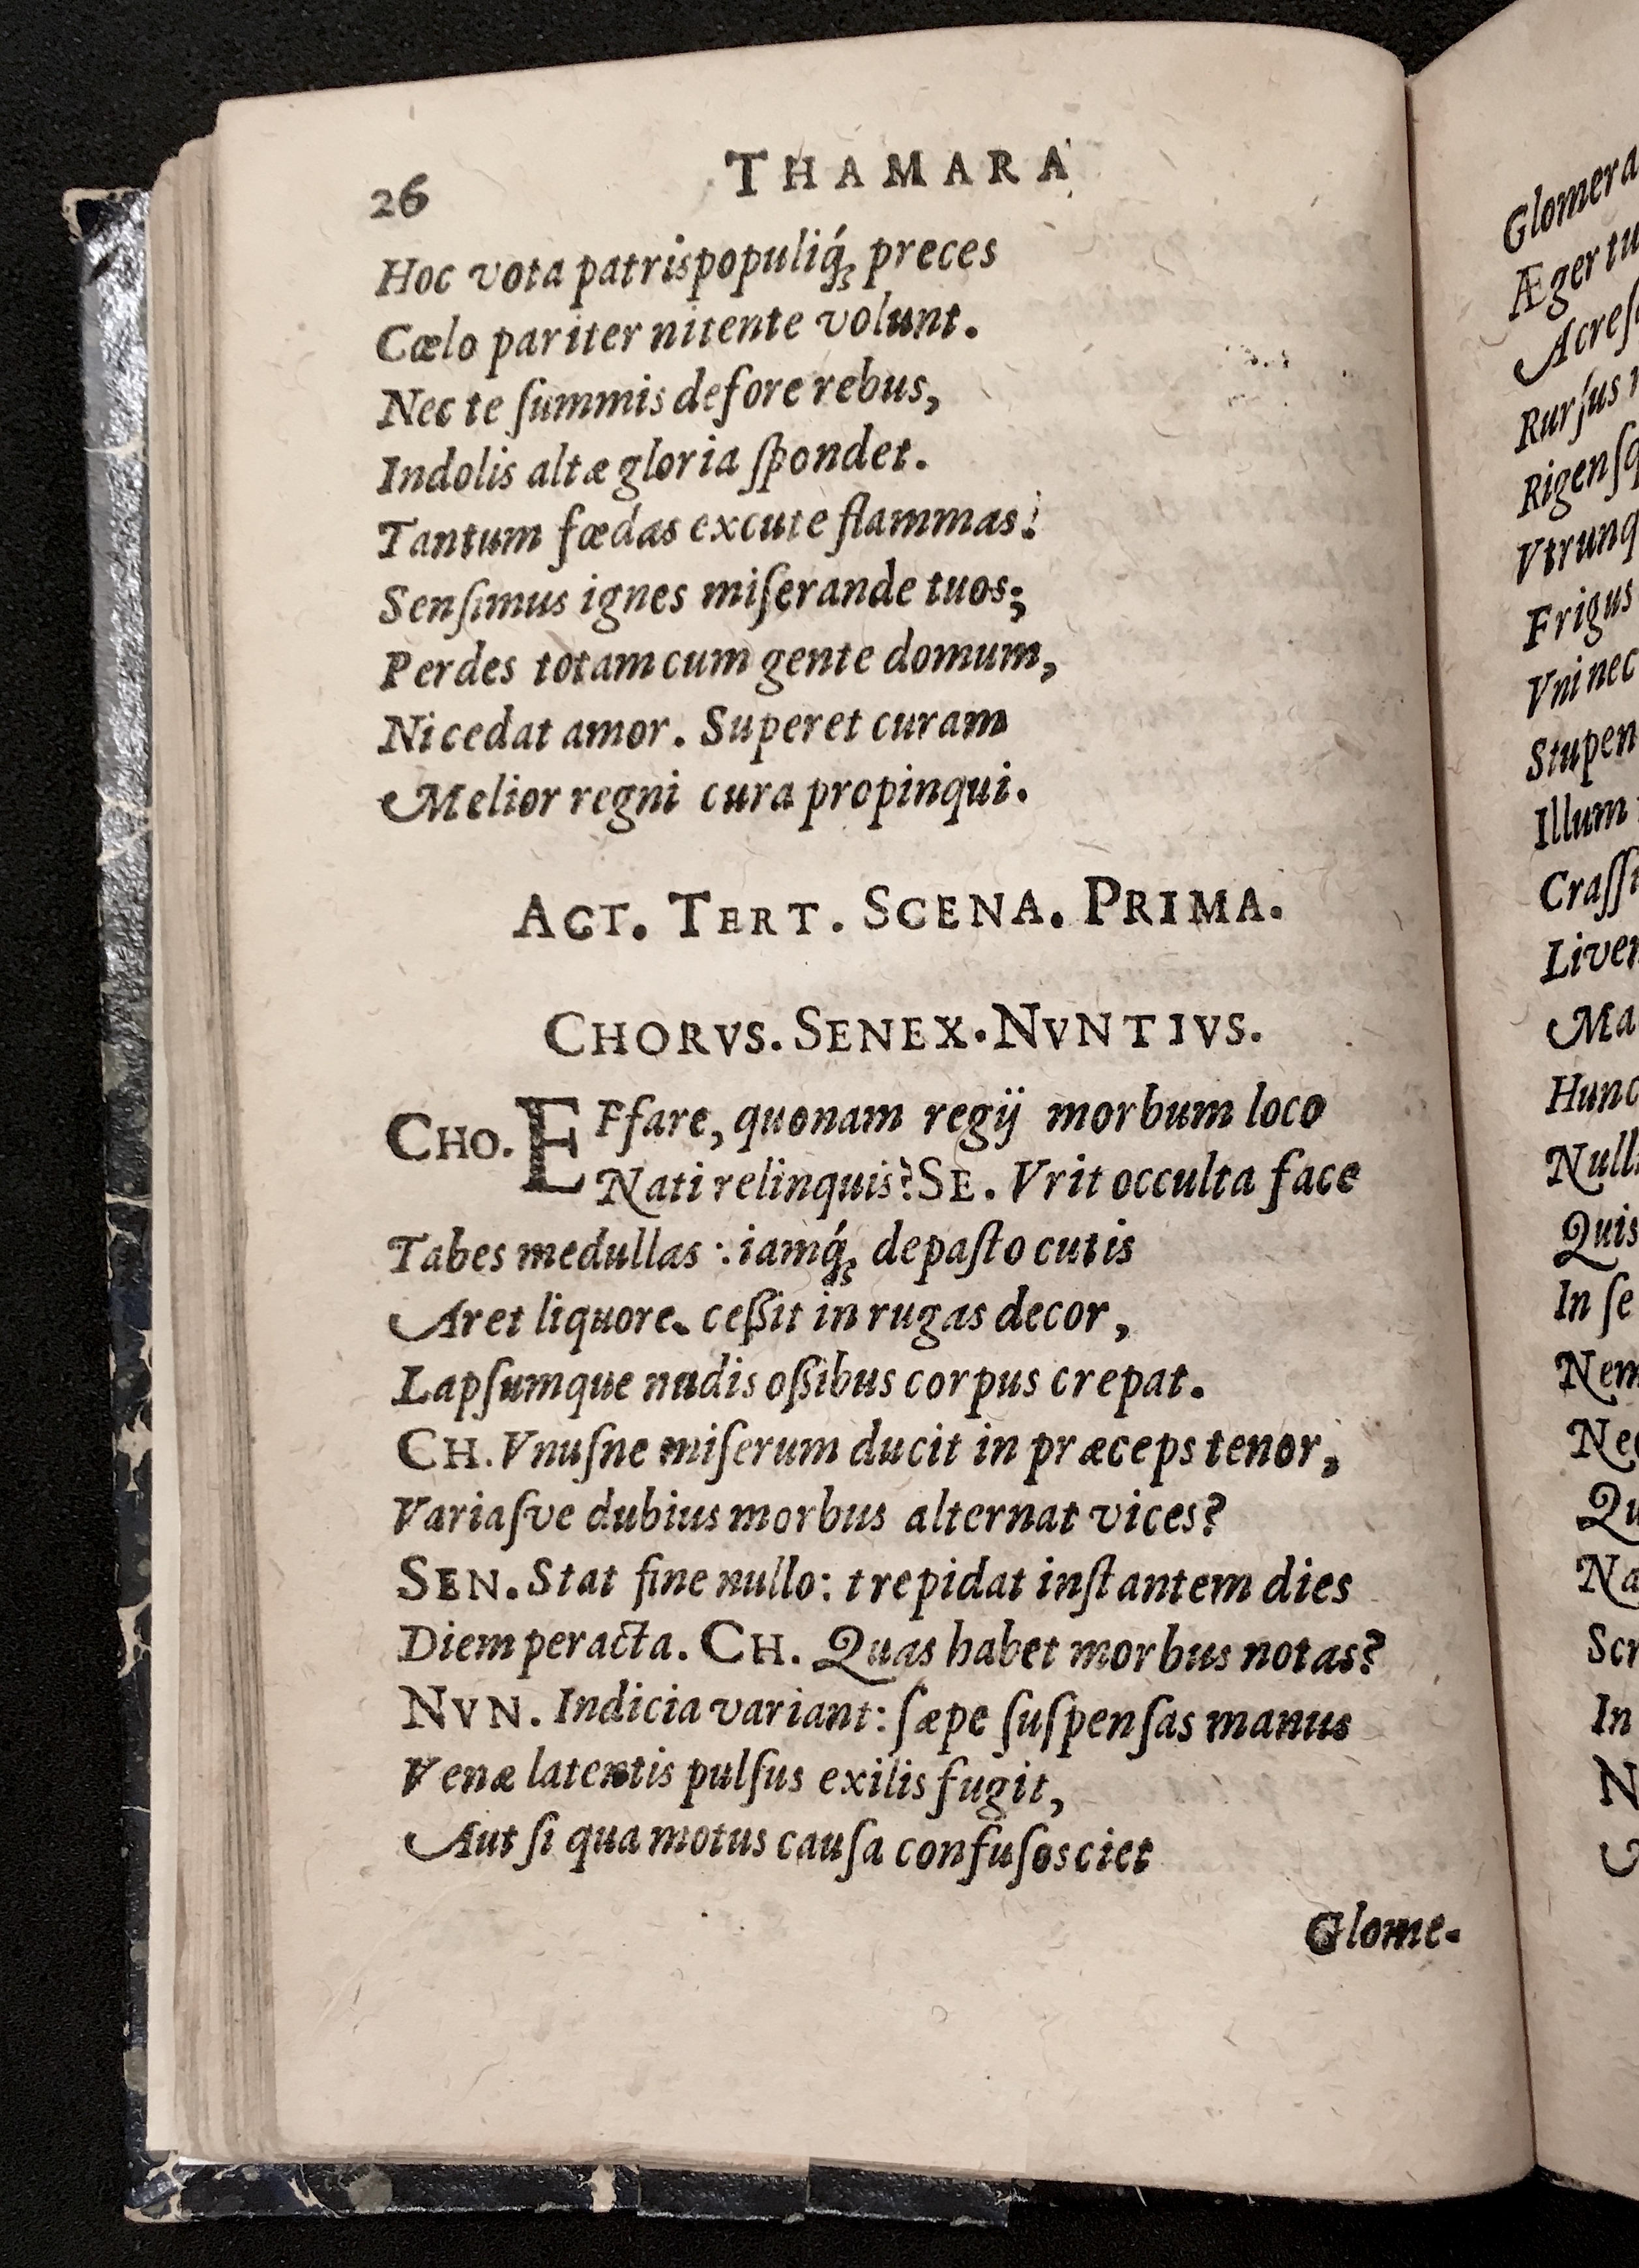 26 THAMARA
Hoc vota patris populiq́ꝫ preces
Cœlo pariter nitente volunt.
Nec te ſummis defore rebus,
Indolis altæ gloria ſpondet.
Tantum fœdas excute flammas:
Senſimus ignes miſerande tuos;
Perdes totam cum gente domum,
Ni cedat amor. Superet curam
Melior regni cura propinqui.
ACT. TERT. SCENA. PRIMA.
CHORVS. SENEX. NVNTIVS.
CHO. EFfare, quonam regij morbum loco
Nati relinquis? SE. Vrit occulta face
Tabes medullas: iamq́ꝫ depaſto cutis
Aret liquore. ceßit in rugas decor,
Lapſumque nudis oßibus corpus crepat.
CH. Vnuſne miſerum ducit in præceps tenor,
Variaſve dubius morbus alternat vices?
SEN. Stat fine nullo: trepidat inſtantem dies
Diem peracta. CH. Quas habet morbus notas?
NVN. Indicia variant: ſæpe ſuſpenſas manus
Venæ latentis pulſus exilis fugit,
Aut ſi qua motus cauſa confuſos ciet
Glome-
Glomera
Æger tu
Acreſ
Rurſus
Rigenſq
Vtrunq
Frigus
Vni nec
Stupen
Illum
Craſſi
Liven
Ma
Hunc
Null
Quis
In ſe
Nem
Nec
Qu
Na
Scr
In
N